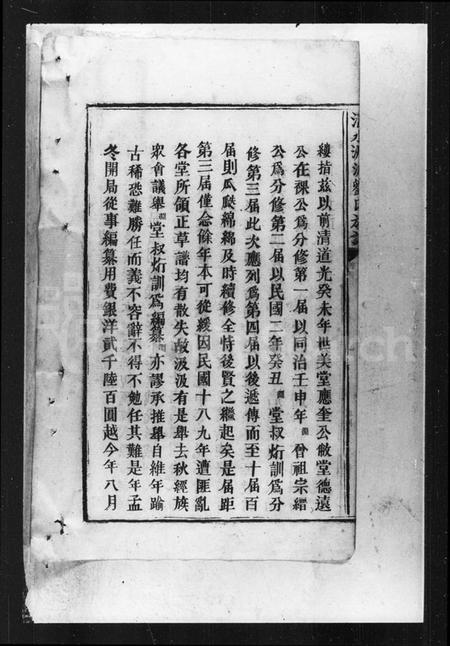 縷指茲以前清道光癸未年世美堂應奎公敝堂德遠
公在祼公爲分修第一届以同治壬申年 曾祖宗縉
公爲分修第二届以民國二年癸丑 堂叔炘訓爲分
修第三届此次應列爲第四届以後遞傳而至十届百
届則瓜瓞綿綿及時續修全恃後賢之繼起矣是届距
第三届僅念餘年本可從緩因民國十八九年遭匪亂
各堂所領正草譜均有散失故汲汲有是舉去秋經族
衆會議舉 堂叔炘訓爲編纂 亦謬承推舉自維年踰
古稀恐難勝任而義不容辭不得不勉任其難是年孟
冬開局從事編纂用費銀洋貳千陸百圓越今年八月